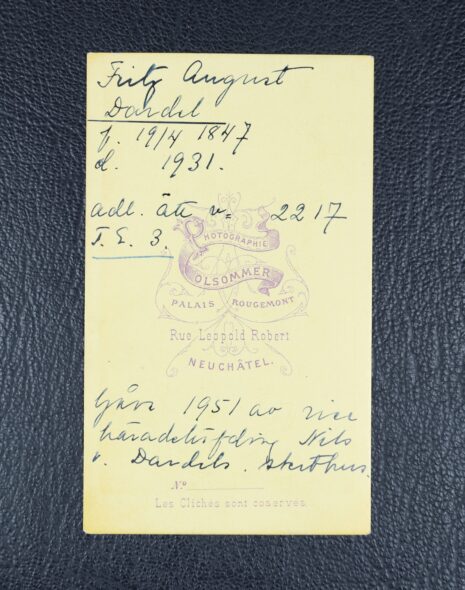 Fritz August
Dardel
f. 19/4 1847
d. 1931.
adl. ätt v= 2217
T. E. 3.
PHOTOGRAPHIE
OLSOMMER
PALAIS ROUGEMONT
Rue Leopold Robert
NEUCHÂTEL.
Gåva 1951 av vice
häradshöfding Nils
v. Dardels sterbhus.
Nº
Les Clichés sont coserves